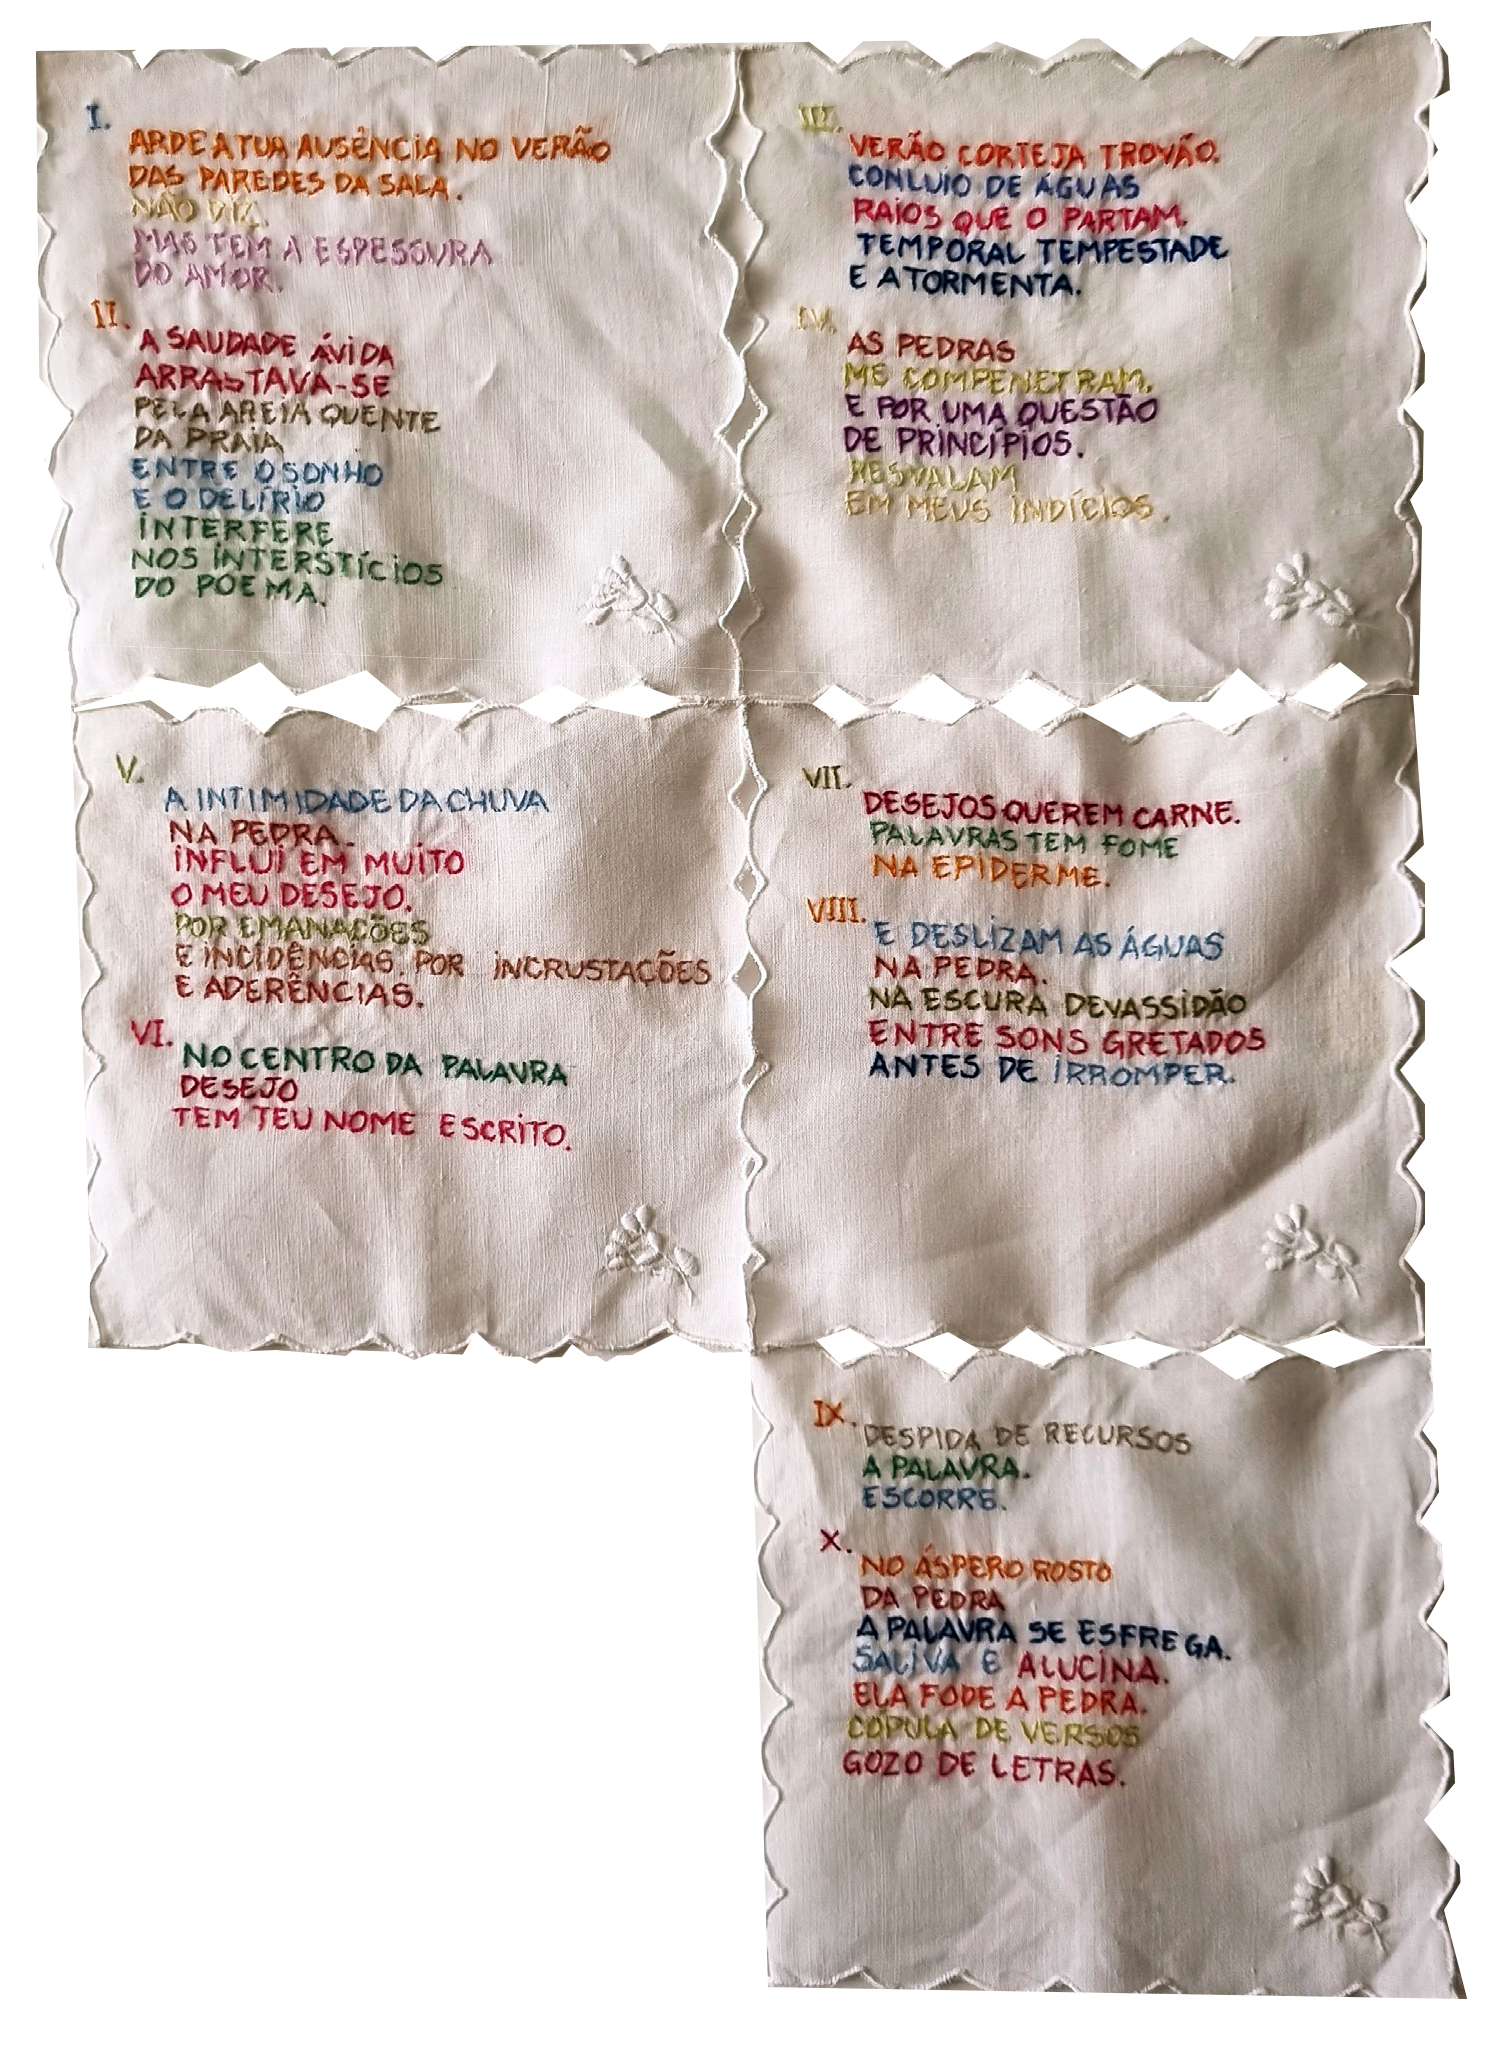 I.
ARDE A TUA AUSÊNCIA NO VERÃO
DAS PAREDES DA SALA.
NÃO DIZ.
MAS TEM A ESPESSURA
DO AMOR.
II.
A SAUDADE ÁVIDA
ARRASTAVA-SE
PELA AREIA QUENTE
DA PRAIA
ENTRE O SONHO
E O DELÍRIO
INTERFERE
NOS INTERSTÍCIOS
DO POEMA.
III.
VERÃO CORTEJA TROVÃO.
CONLUIO DE ÁGUAS
RAIOS QUE O PARTAM.
TEMPORAL TEMPESTADE
E A TORMENTA.
IV.
AS PEDRAS
ME COMPENETRAM.
E POR UMA QUESTÃO
DE PRINCÍPIOS.
RESVALAM
EM MEUS INDÍCIOS.
V.
A INTIMIDADE DA CHUVA
NA PEDRA.
INFLUI EM MUITO
O MEU DESEJO.
POR EMANAÇÕES
E INCIDÊNCIAS. POR INCRUSTAÇÕES
E ADERÊNCIAS.
VI.
NO CENTRO DA PALAVRA
DESEJO
TEM TEU NOME ESCRITO.
VII.
DESEJOS QUEREM CARNE.
PALAVRAS TEM FOME
NA EPIDERME.
VIII.
E DESLIZAM AS ÁGUAS
NA PEDRA.
NA ESCURA DEVASSIDÃO
ENTRE SONS GRETADOS
ANTES DE IRROMPER.
IX.
DESPIDA DE RECURSOS
A PALAVRA.
ESCORRE.
X.
NO ÁSPERO ROSTO
DA PEDRA
A PALAVRA SE ESFREGA.
SALIVA E ALUCINA.
ELA FODE A PEDRA.
CÓPULA DE VERSOS
GOZO DE LETRAS.